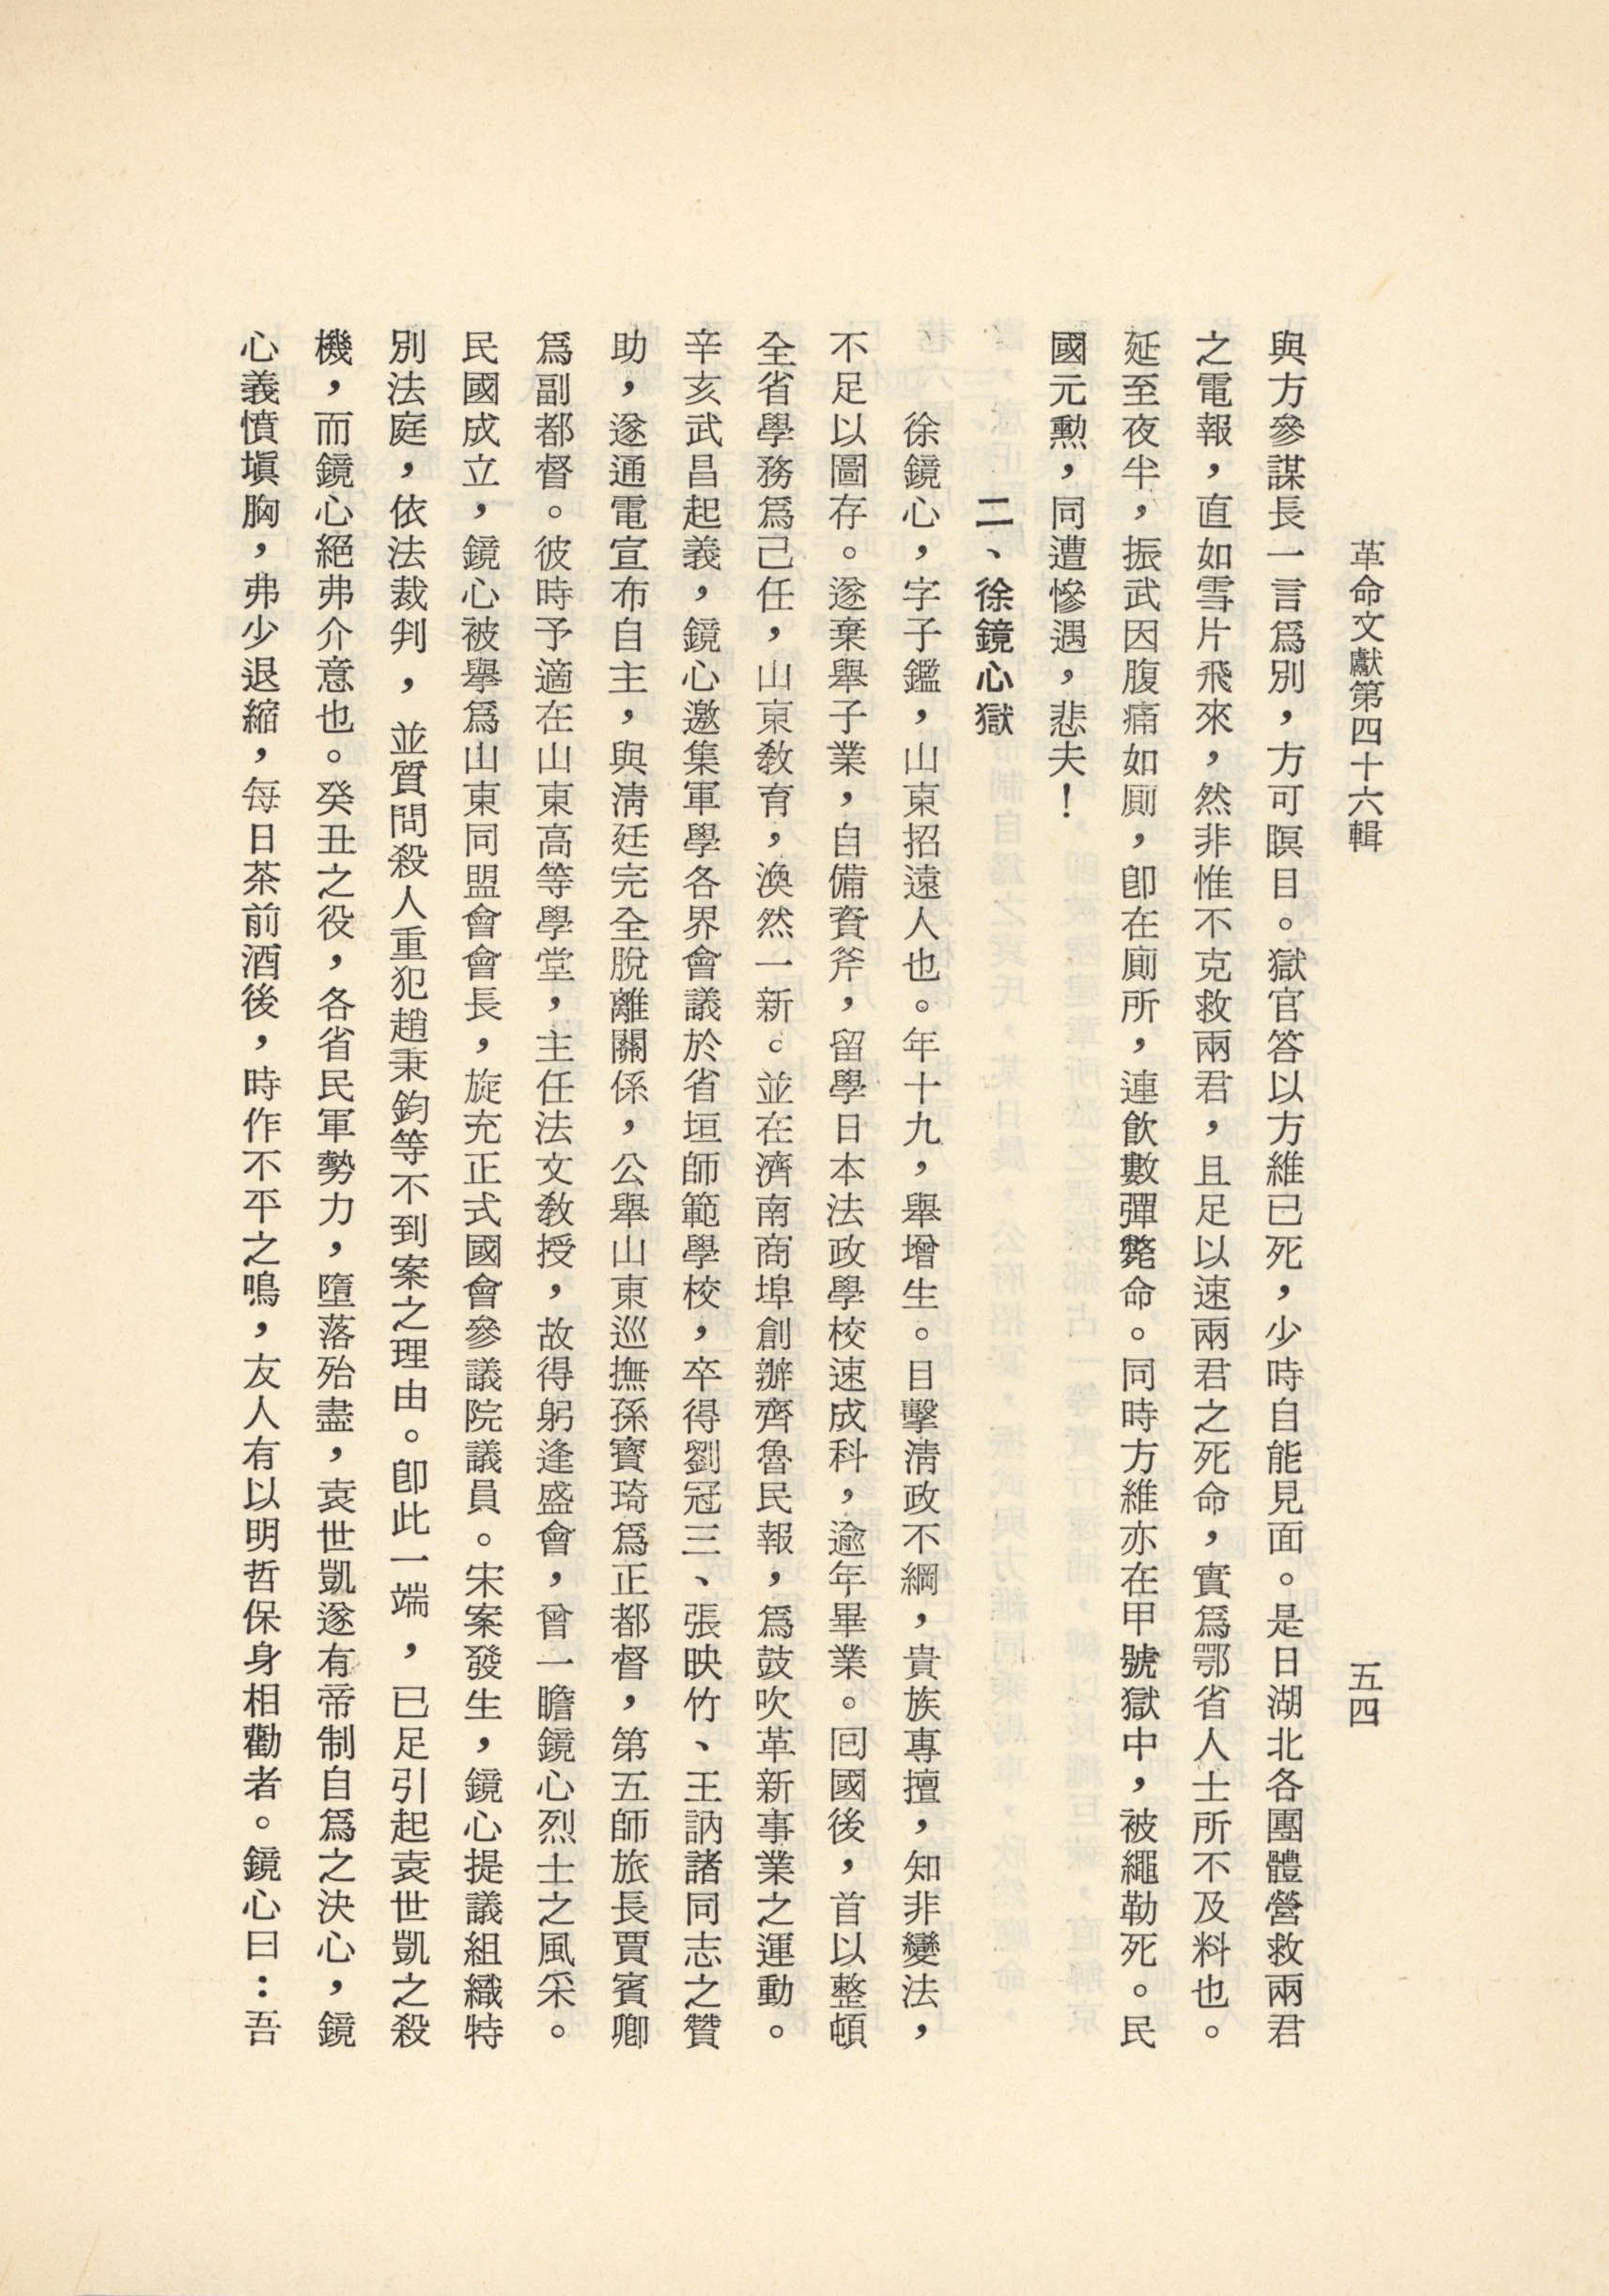 革命文獻第四十六輯
五四
與方參謀長一言爲別，方可瞑目。獄官答以方維已死，少時自能見面。是日湖北各團體營救兩君
之電報，直如雪片飛來，然非惟不克救兩君，且足以速兩君之死命，實爲鄂省人士所不及料也。
延至夜半，振武因腹痛如厠，卽在廁所，連飮數彈斃命。同時方維亦在甲號獄中，被繩勒死。民
國元勳，同遭慘遇，悲夫！
二、徐鏡心獄
徐鏡心，字子鑑，山東招遠人也。年十九，舉增生。目擊淸政不綱，貴族專擅，知非變法，
不足以圖存。遂棄舉子業，自備資斧，留學日本法政學校速成科，逾年畢業。囘國後，首以整頓
全省學務爲己任，山東敎育，渙然一新。並在濟南商埠創辦齊魯民報，爲鼓吹革新事業之運動。
辛亥武昌起義，鏡心邀集軍學各界會議於省垣師範學校，卒得劉冠三、張映竹、王訥諸同志之贊
助，遂通電宣布自主，與淸廷完全脫離關係，公舉山東巡撫孫寶琦爲正都督，第五師旅長賈賓卿
爲副都督。彼時予適在山東高等學堂，主任法文敎授，故得躬逢盛會，曾一瞻鏡心烈士之風采。
民國成立，鏡心被舉爲山東同盟會會長，旋充正式國會參議院議員。宋案發生，鏡心提議組織特
別法庭，依法裁判，並質問殺人重犯趙秉鈞等不到案之理由。卽此一端，已足引起袁世凱之殺
機，而鏡心絕弗介意也。癸丑之役，各省民軍勢力，墮落殆盡，袁世凱遂有帝制自爲之決心，鏡
心義憤塡胸，弗少退縮，每日茶前酒後，時作不平之鳴，友人有以明哲保身相勸者。鏡心曰：吾